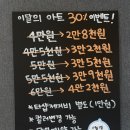 이달의 아트 30% 이벤트!
4만원 → 2만8천원
4만5천원 → 3만2천원
5만원 → 3만5천원
5만5천원 → 3만9천원
6만원 → 4만2천원
* 타샵제거비 별도 (1만원)
* 컬러변경 가능